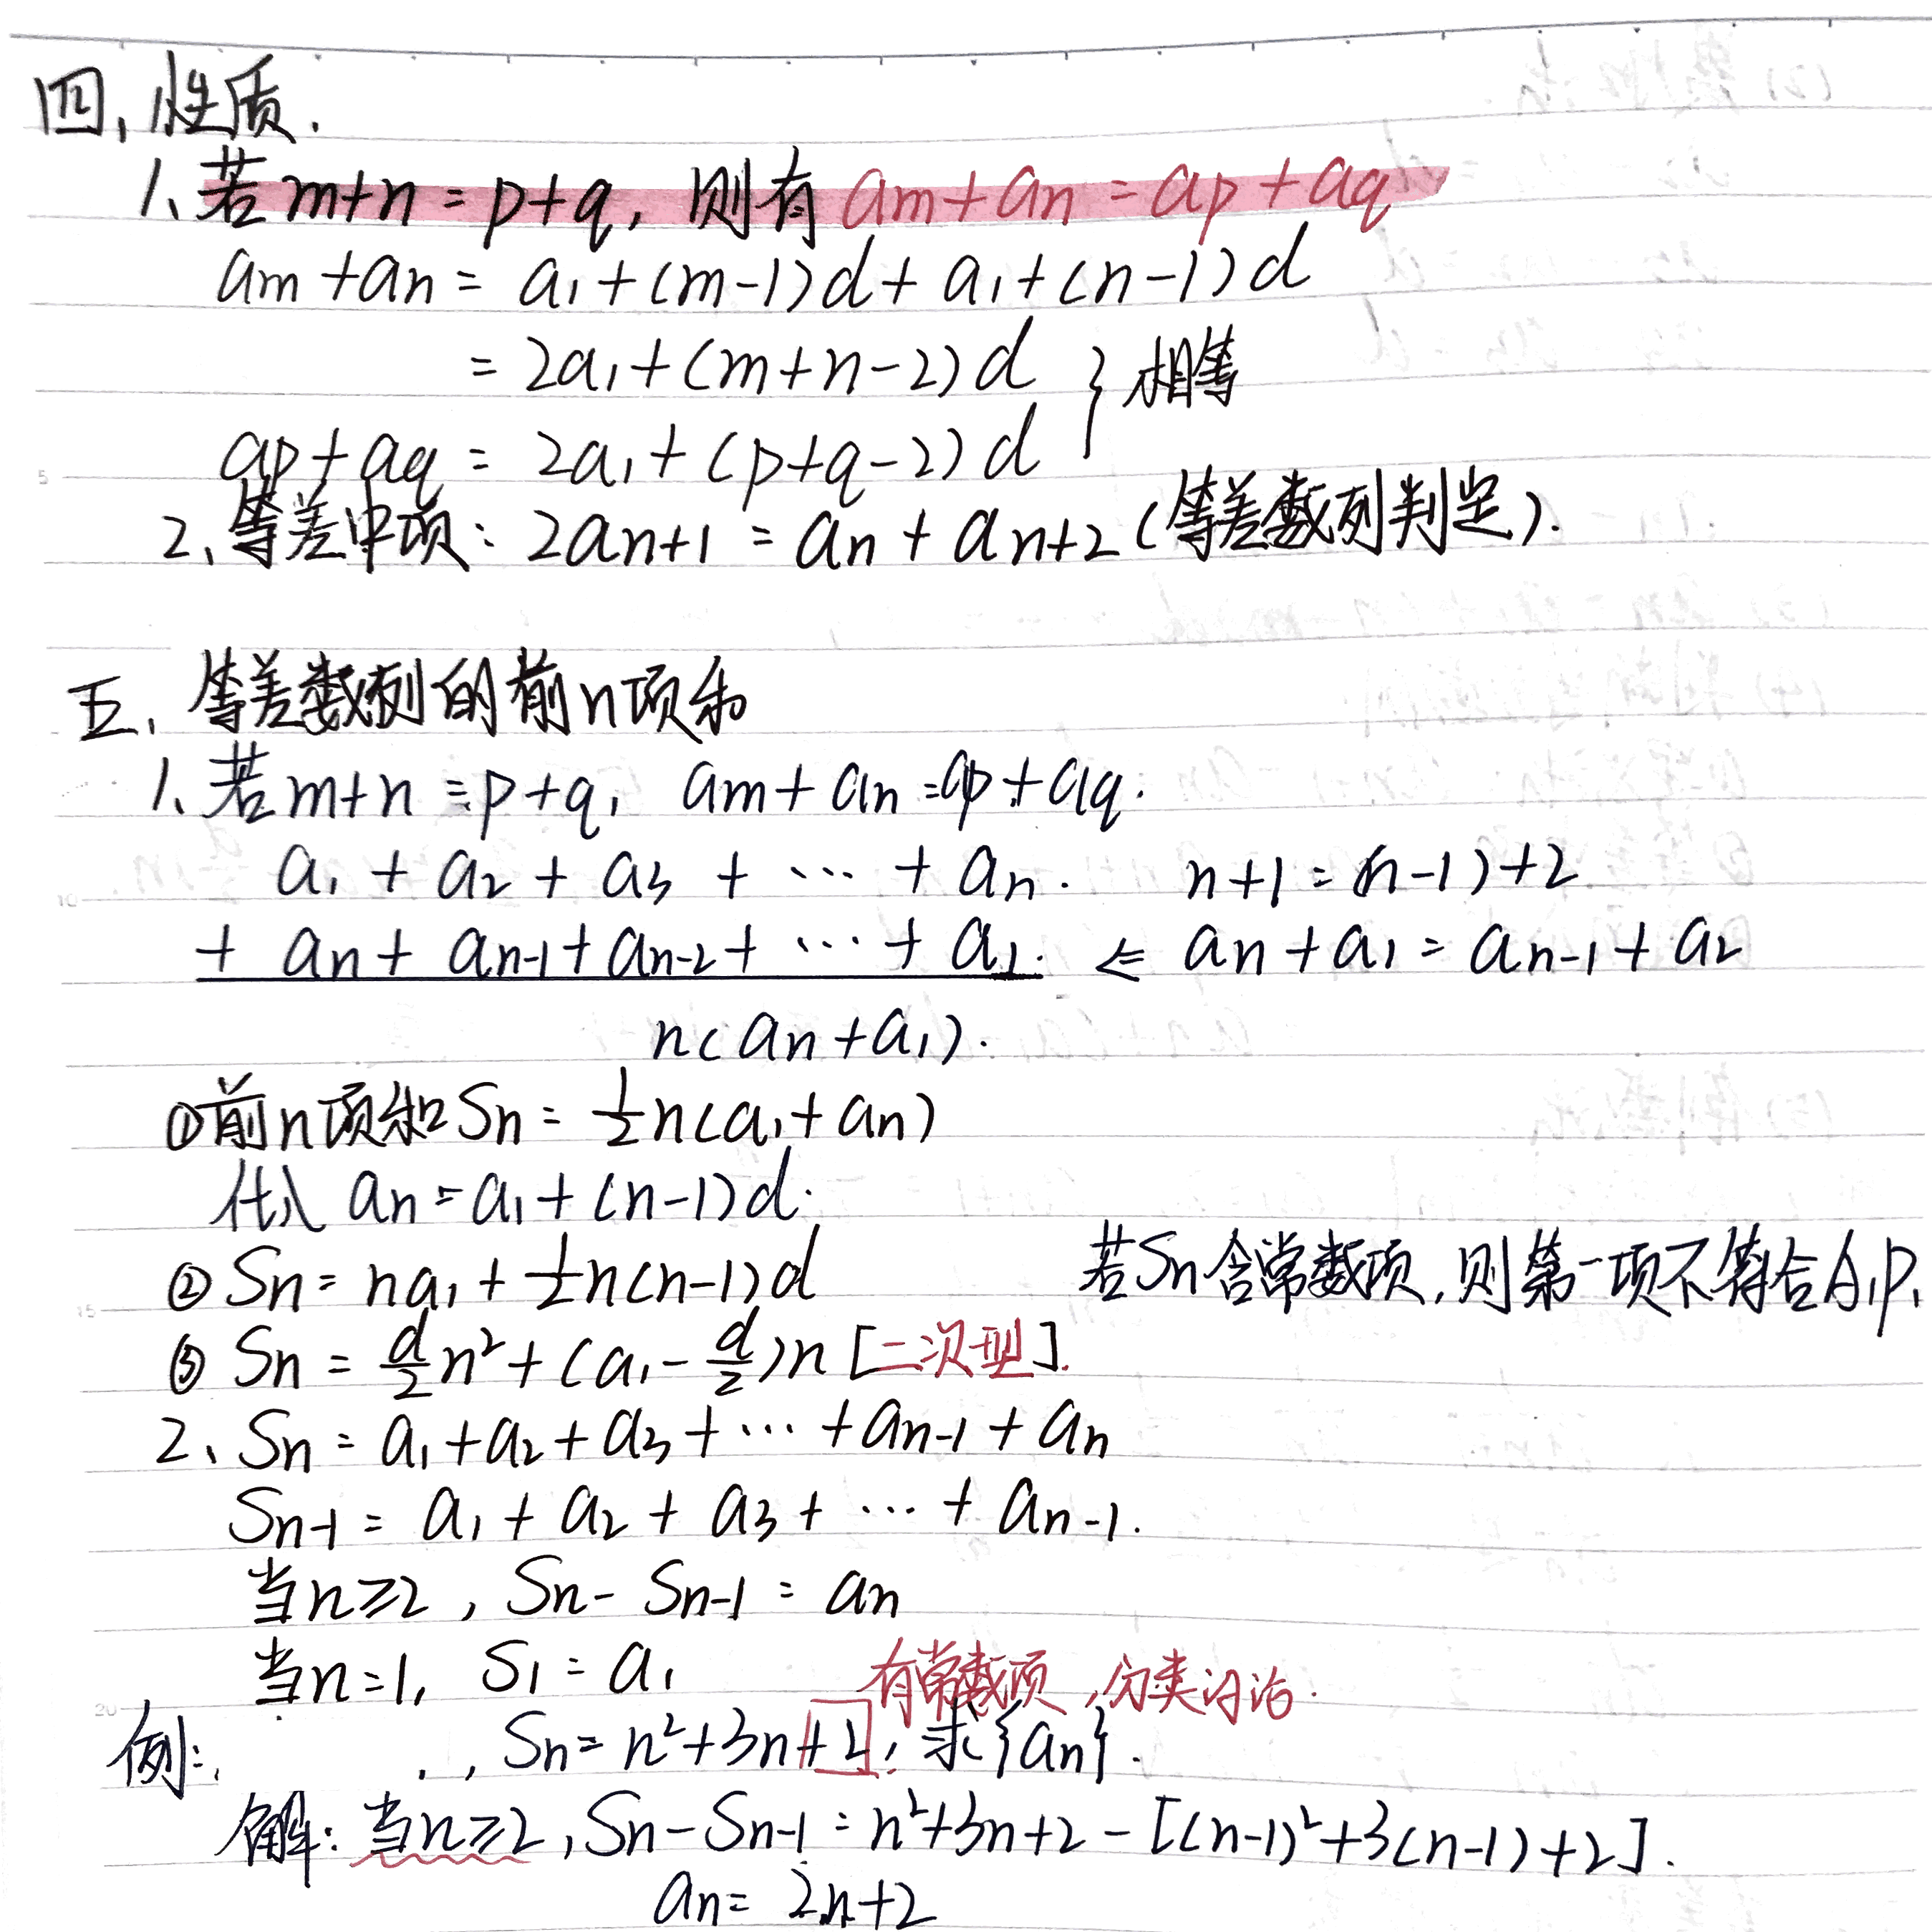 四、性质.
1、若m+n=p+q, 则有 am+an=ap+aq
am+an = a₁+(m-1)d+a₁+(n-1)d
= 2a₁+(m+n-2)d } 相等
ap+aq = 2a₁+(p+q-2)d
2、等差中项: 2an+1 = an + an+2 (等差数列判定).
五、等差数列的前n项和
1、若m+n=p+q, am+an=ap+aq.
a₁ + a₂ + a₃ + … + an. n+1=(n-1)+2
+ an + an-1 + an-2 + … + a₁. ⇐ an+a₁=an-1+a₂
n(an+a₁).
①前n项和Sn = ½n(a₁+an)
代入 an=a₁+(n-1)d.
②Sn = na₁ + ½n(n-1)d 若Sn含常数项,则第一项不符合A.P.
③ Sn = d/2 n² + (a₁ - d/2)n [二次型].
2、Sn = a₁+a₂+a₃+…+an-1+an
Sn-1 = a₁ + a₂ + a₃ + … + an-1.
当n≥2, Sn-Sn-1 = an
当n=1, S₁=a₁ 有常数项,分类讨论.
例: Sn=n²+3n+2, 求{an}.
解: 当n≥2, Sn-Sn-1=n²+3n+2-[(n-1)²+3(n-1)+2].
an= 2n+2